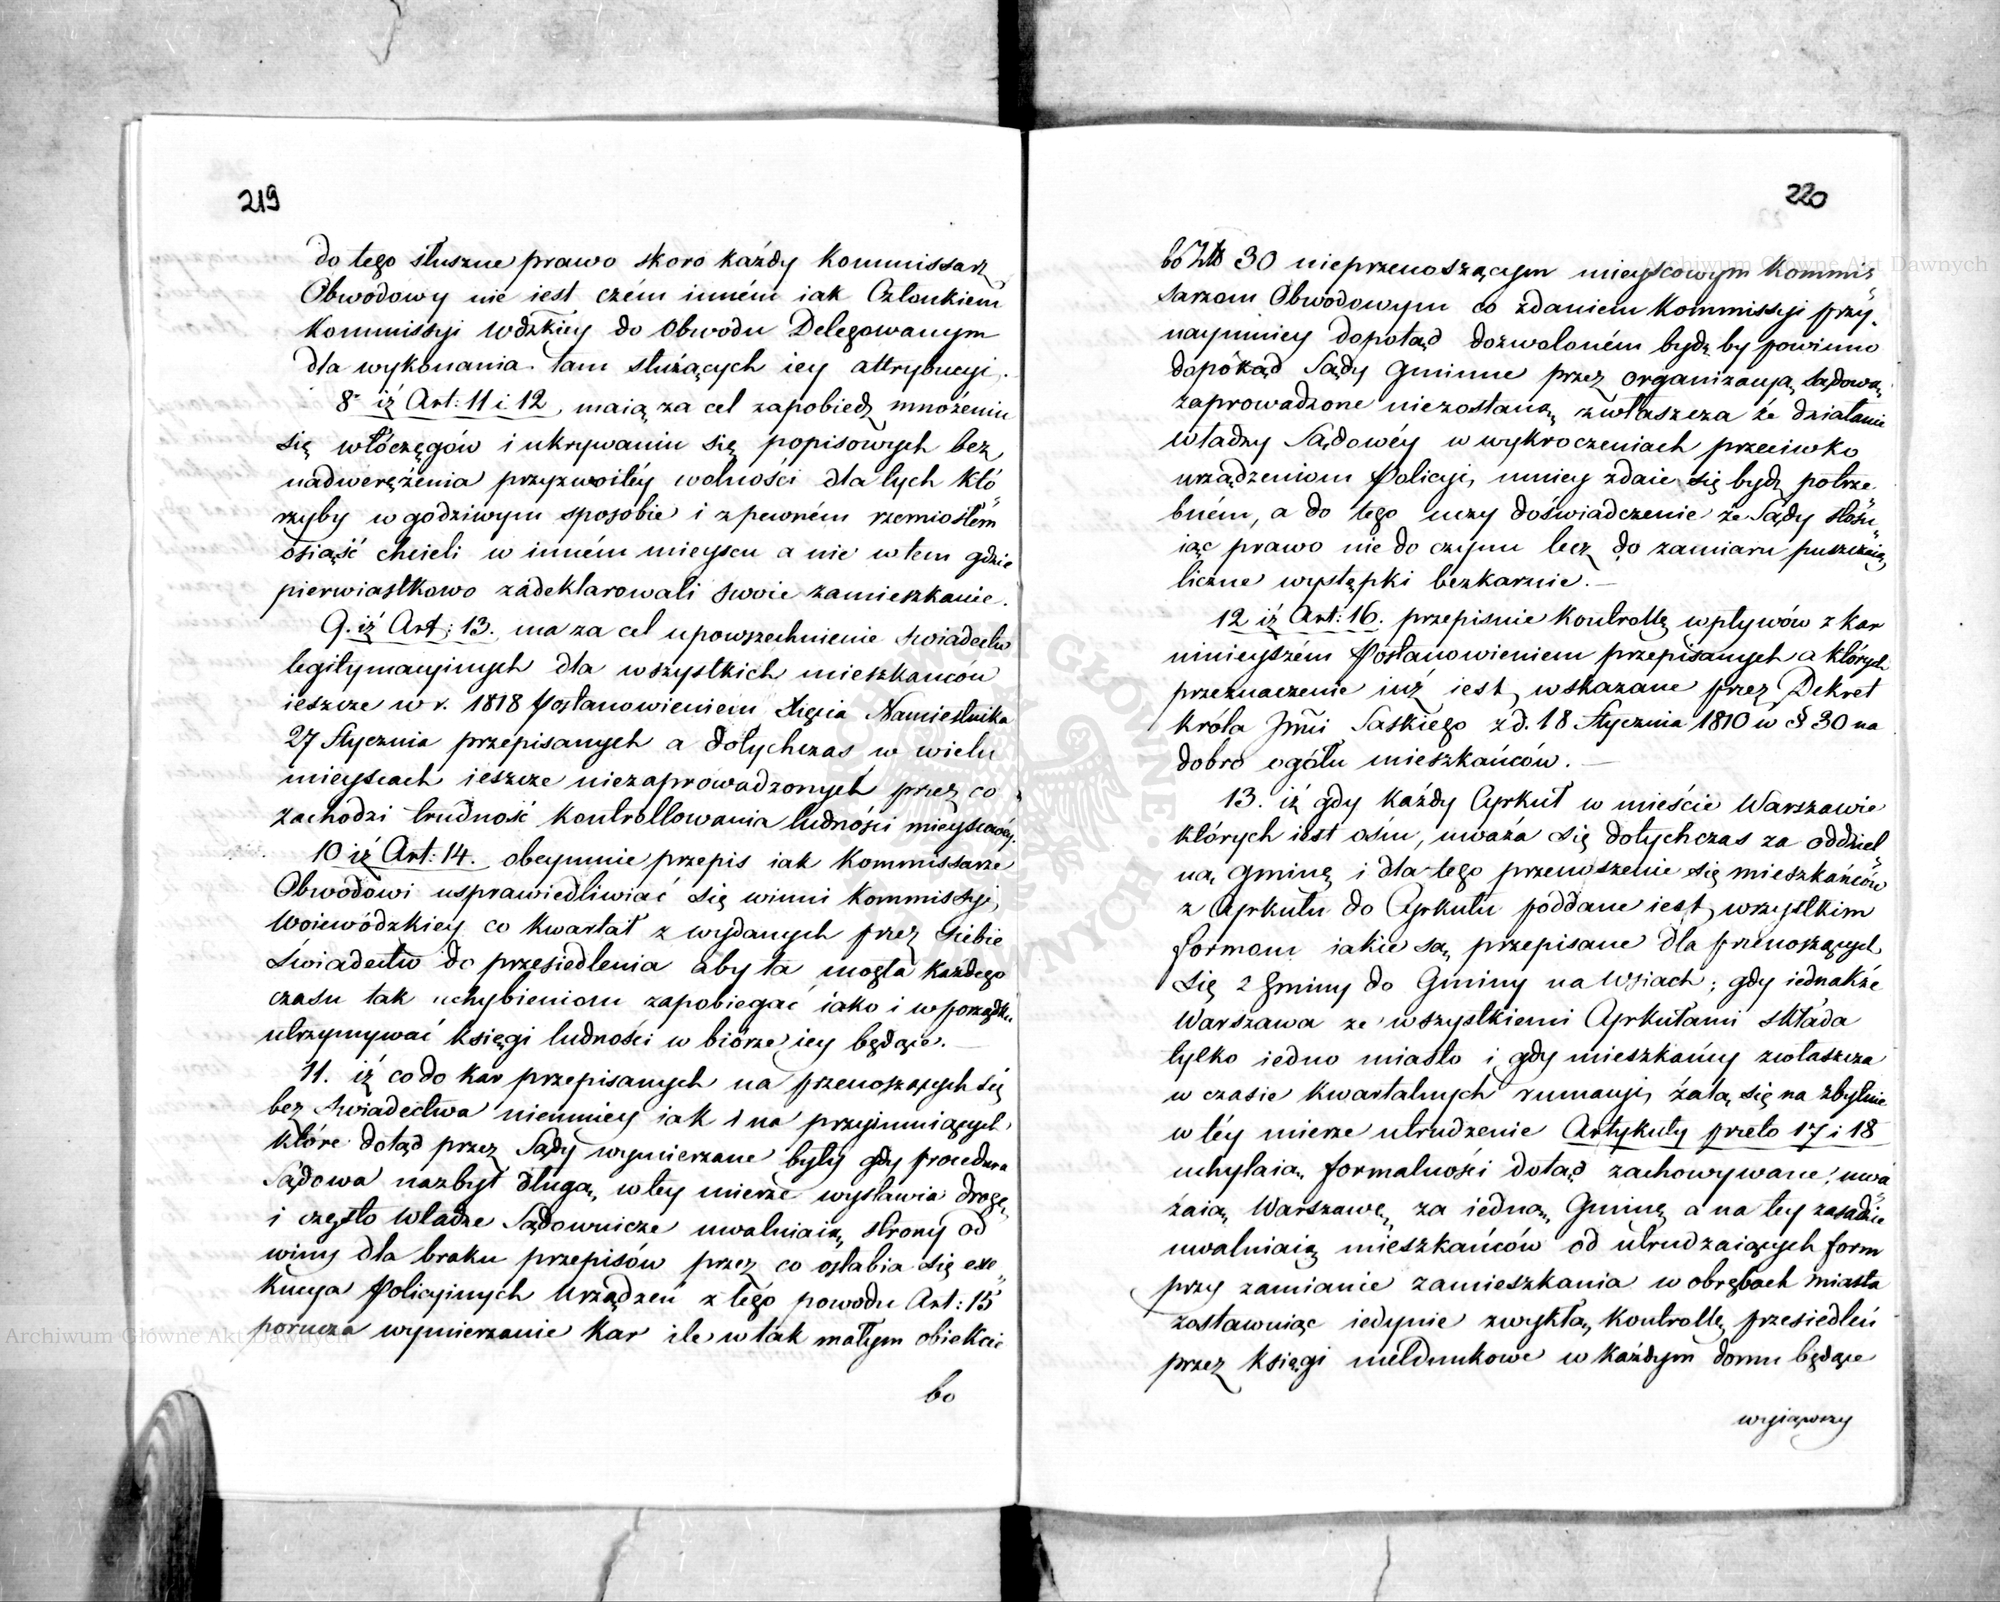 219
do tego słuszne prawo skoro każdy Kommissarz
Obwodowy nie iest czém inném iak Członkiem
Kommissyi Wdzkiey do Obwodu Delegowanym
dla wykonania tam służących iey attrybucyi.
8º iż Art: 11 i 12, maią za cel zapobiedz mnożeniu
się włóczęgów i ukrywaniu się popisowych bez
nadwerężenia przyzwoitéy wolności dla tych któ
rzyby w godziwym sposobie i z pewném rzemiosłem
osiąść chcieli w inném mieyscu a nie w tem gdzie
pierwiastkowo zadeklarowali swoie zamieszkanie.
9. iż Art: 13. ma za cel upowszechnienie świadectw
legitymacyinych dla wszystkich mieszkańców
ieszcze w r. 1818 Postanowieniem Xięcia Namiestnika
27 Stycznia przepisanych a dotychczas w wielu
mieyscach ieszcze niezaprowadzonych przez co
zachodzi trudność kontrollowania ludności mieyscowéy.
10 iż Art: 14. obeymuie przepis iak Kommissarze
Obwodowi usprawiedliwiać się winni Kommissyi
Woiewódzkiey co kwartał z wydanych przez siebie
świadectw do przesiedlenia aby ta mogła każdego
czasu tak uchybieniom zapobiegać iako i w porządku
utrzymywać księgi ludności w biórze iey będące.
11. iż co do kar przepisanych na przenoszących się
bez świadectwa niemniey iak i na przyimuiących
które dotąd przez Sądy wymierzane były gdy procedura
Sądowa nazbyt długą w tey mierze wystawia drogę
i często Władze Sądownicze uwalniaią strony od
winy dla braku przepisów przez co osłabia się exe
kucya Policyinych Urządzeń z tego powodu Art: 15
porucza wymierzanie kar ile w tak małym obiekcie
bo
220
bo Złt 30 nieprzenoszącym mieyscowym Kommis
sarzom Obwodowym co zdaniem Kommissyi przy
naymniey dopotąd dozwoloném bydź by powinno
dopókąd Sądy Gminne przez organizacyą sądową
zaprowadzone niezostaną zwłaszcza że działanie
władzy Sądowéy w wykroczeniach przeciwko
urządzeniom Policyi, mniey zdaie się bydź potrze
bném, a do tego uczy doświadczenie że Sądy stosu
iąc prawo nie do czynu lecz do zamiaru puszczaią
liczne występki bezkarnie.
12 iż Art: 16. przepisuie kontrollę wpływów z kar
ninieyszém Postanowieniem przepisanych a których
przeznaczenie iuż iest wskazane przez Dekret
Króla Jmći Saskiego z d. 18 Stycznia 1810 w § 30 na
dobro ogółu mieszkańców.
13. iż gdy każdy Cyrkuł w mieście Warszawie
których iest ośm, uważa się dotychczas za oddziel
ną Gminę i dla tego przenoszenie się mieszkańców
z Cyrkułu do Cyrkułu poddane iest wszystkim
formom iakie są przepisane dla przenoszących
się z Gminy do Gminy na Wsiach; gdy iednakże
Warszawa ze wszystkiemi Cyrkułami składa
tylko iedno miasto i gdy mieszkańcy zwłaszcza
w czasie kwartalnych rumacyi żalą się na zbytnie
w téy mierze utrudzenie Artykuły przeto 17 i 18
uchylaią formalności dotąd zachowywane, uwa
żaią Warszawę za iedną Gminę a na tey zasadzie
uwalniaią mieszkańców od utrudzaiących form
przy zamianie zamieszkania w obrębach miasta
zostawuiąc iedynie zwykłą kontrollę przesiedleń
przez księgi meldunkowe w każdym domu będące
wyiąwszy
Archiwum Główne Akt Dawnych
Archiwum Główne Akt Dawnych